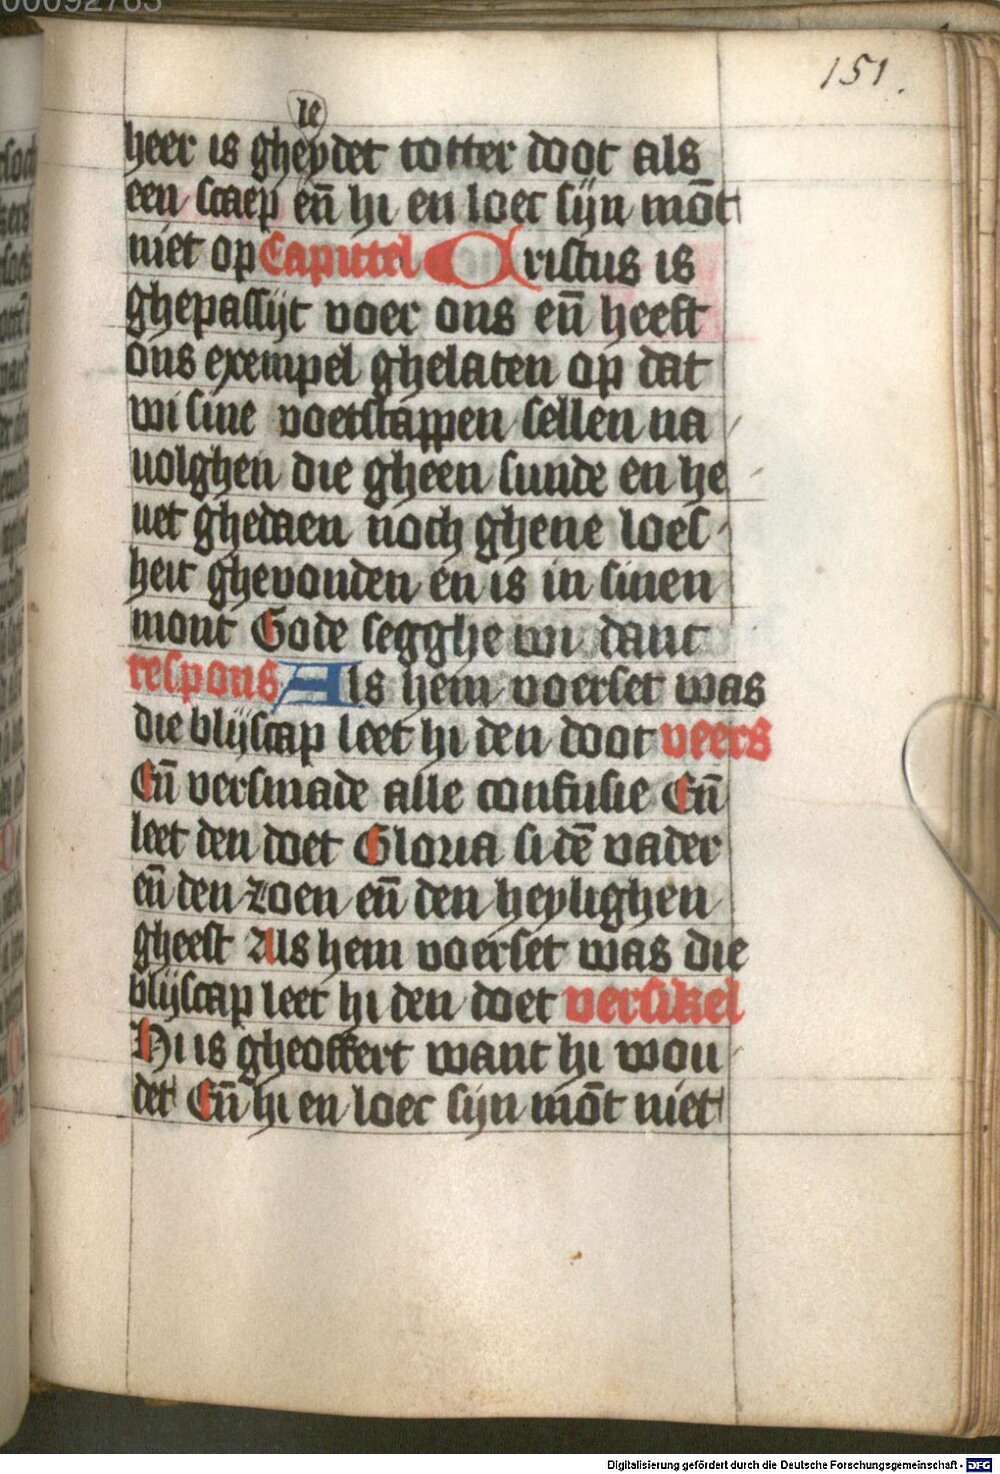 00092763
151.
le
heer is gheydet totter doot als
een scaep en̄ hi en loec sijn mōt
niet op Capittel Cristus is
ghepassijt voer ons en̄ heeft
ons exempel ghelaten op dat
wi sine voetstappen sellen na
uolghen die gheen sunde en he
uet ghedaen noch ghene loes
heit ghevonden en is in sinen
mont Gode segghe wi danc
respons Als hem voerset was
die blijscap leet hi den doot veers
En̄ versmade alle confusie En̄
leet den doet Gloria si dē vader
en̄ den zoen en̄ den heylighen
gheest Als hem voerset was die
blijscap leet hi den doet versikel
Hi is gheoffert want hi wou
det En̄ hi en loec sijn mōt niet
Digitalisierung gefördert durch die Deutsche Forschungsgemeinschaft - DFG